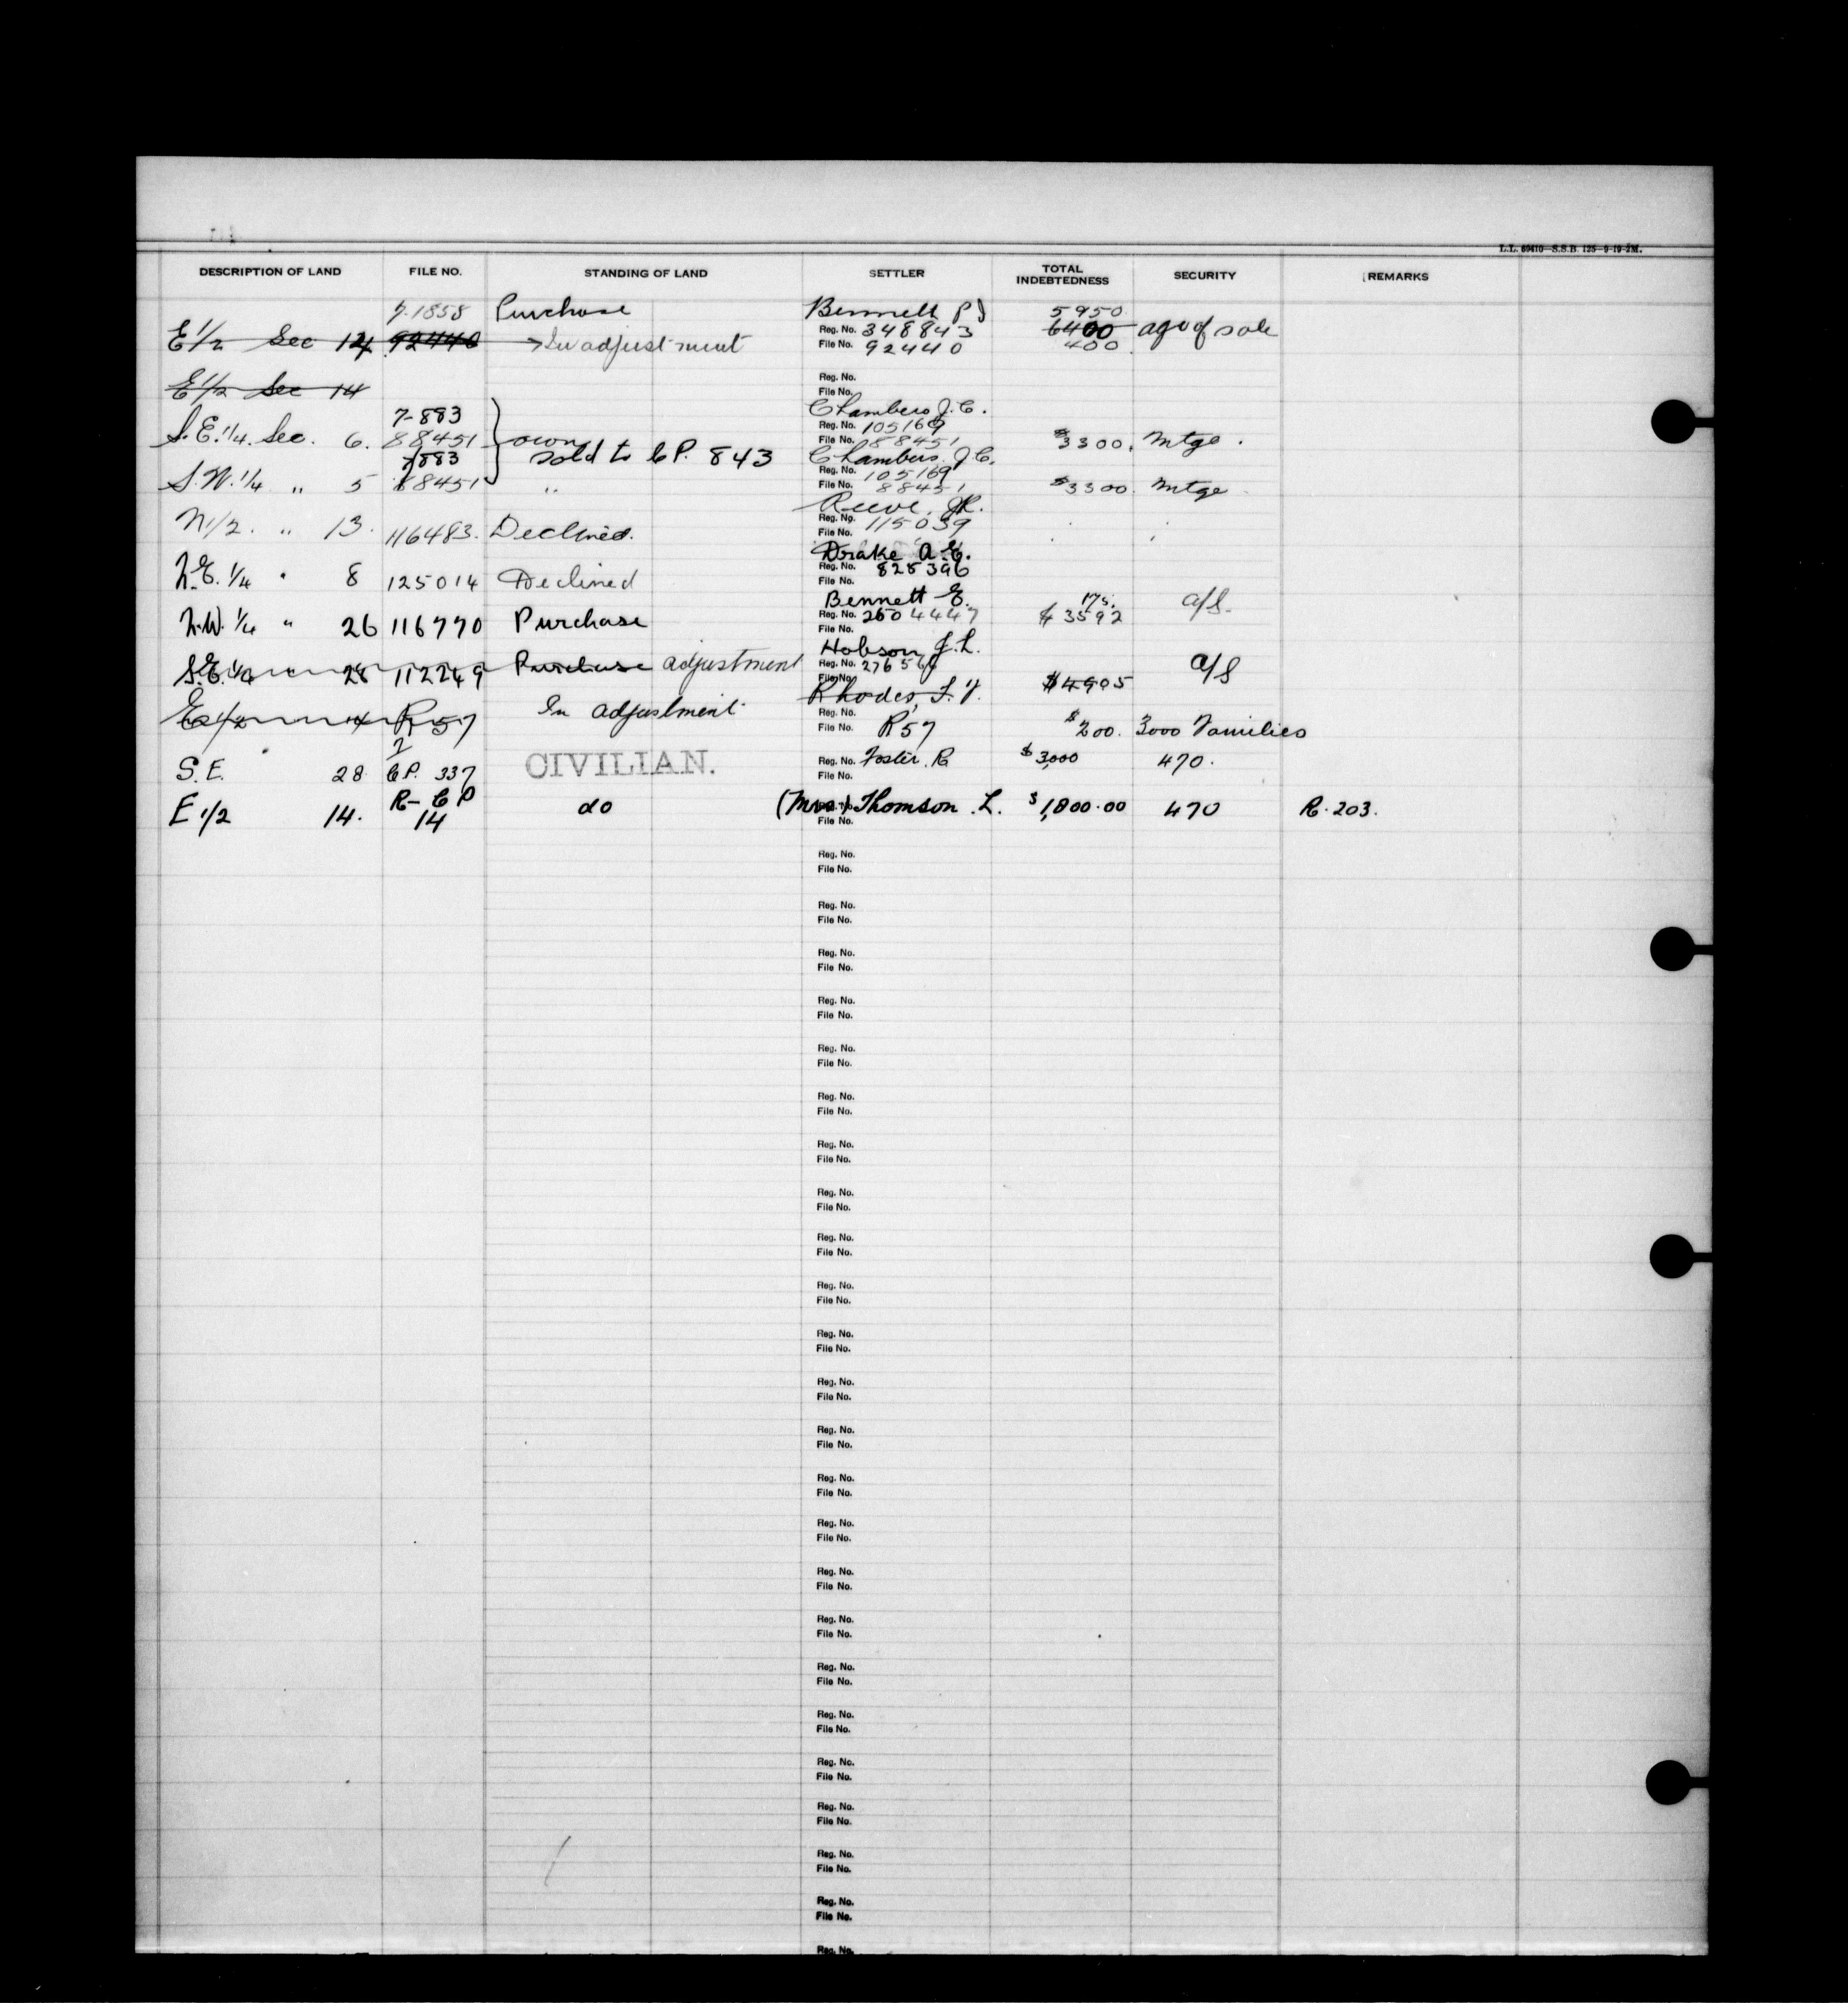 L.L. 69410—S.S.B. 125—9-19-2M.
DESCRIPTION OF LAND FILE NO. STANDING OF LAND SETTLER TOTAL INDEBTEDNESS SECURITY REMARKS
7-1858 Purchase Bennett P J 5950
E 1/2 Sec 14 92440 In adjustment Reg. No. 348843 6400 agt of sale
File No. 92440 400
E 1/2 Sec 14 Reg. No.
File No.
7-883 Chambers J.C.
Reg. No. 105169
S.E. 1/4. Sec. 6. 88451 own File No. 88451 $3300. Mtge.
7883 sold to C.P. 843 Chambers. J.C.
Reg. No. 105169
S.W. 1/4 " 5 88451 " File No. 88451 $3300. Mtge
Reeve, J.R.
N 1/2. " 13. 116483. Declined. Reg. No. 115039
File No.
Drake A.E.
N.E. 1/4 " 8 125014 Declined Reg. No. 828396
File No.
Bennett E. 175. a/s.
N.W. 1/4 " 26 116770 Purchase Reg. No. 2504447 $3592
File No.
Hobson J.L.
S.E. 1/4 " 28 112249 Purchase adjustment Reg. No. 276566 a/s
File No. $4905
Rhodes, F.Y.
E 1/2 " 14 R57 In adjustment Reg. No.
File No. R57 $200. 3000 Families
S.E. 28 C.P. 337 CIVILIAN. Reg. No. Foster. R $3,000 470.
File No.
E 1/2 14. R-CP 14 do (Mrs) Thomson. L. $1,800.00 470 R.203.
File No.
Reg. No.
File No.
Reg. No.
File No.
Reg. No.
File No.
Reg. No.
File No.
Reg. No.
File No.
Reg. No.
File No.
Reg. No.
File No.
Reg. No.
File No.
Reg. No.
File No.
Reg. No.
File No.
Reg. No.
File No.
Reg. No.
File No.
Reg. No.
File No.
Reg. No.
File No.
Reg. No.
File No.
Reg. No.
File No.
Reg. No.
File No.
Reg. No.
File No.
Reg. No.
File No.
Reg. No.
File No.
Reg. No.
File No.
Reg. No.
File No.
Reg. No.
File No.
Reg. No.